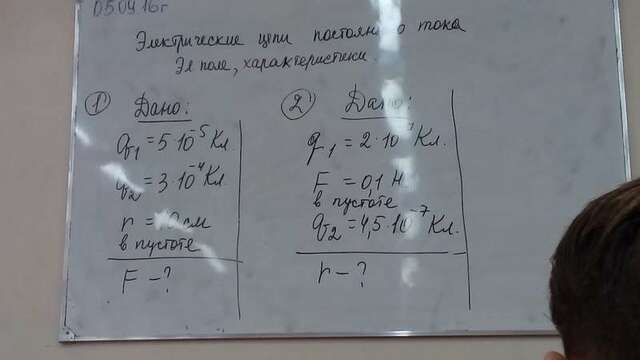 05.04.16г
Электрические цепи постоянного тока
Эл поле, характеристики.
1) Дано:
q₁ = 5·10⁻⁵ Кл.
q₂ = 3·10⁻⁴ Кл.
r = см
в пустоте
F – ?
2) Дано:
q₁ = 2·10 Кл.
F = 0,1 Н
в пустоте
q₂ = 4,5·10⁻⁷ Кл.
r – ?